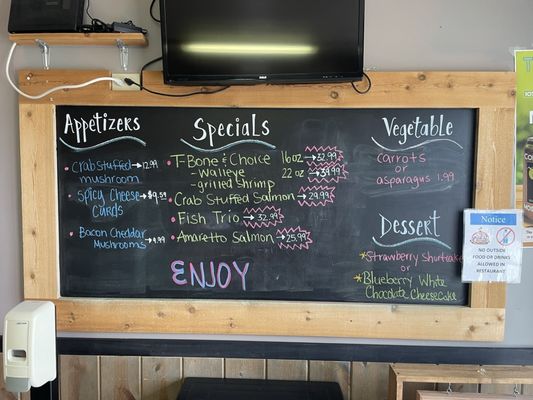 Appetizers
Crab Stuffed → 12.99
mushroom
Spicy Cheese → $9.59
Curds
Bacon Cheddar
Mushrooms → 9.99
Specials
T-Bone & Choice 16oz → 32.99
- Walleye 22oz → 39.99
- grilled Shrimp
Crab Stuffed Salmon → 29.99
Fish Trio → 32.99
Amaretto Salmon → 25.99
ENJOY
Vegetable
carrots
or
asparagus 1.99
Dessert
Strawberry Shortcake
or
Blueberry White
Chocolate Cheesecake
Notice
NO OUTSIDE
FOOD OR DRINKS
ALLOWED IN
RESTAURANT